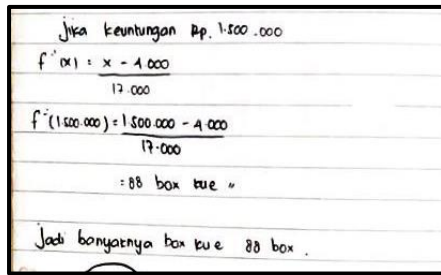 Jika keuntungan Rp. 1.500.000
f⁻¹(x) = x - 4000
17.000
f⁻(1.500.000) = 1.500.000 - 4.000
17.000
= 88 box kue "
Jadi banyaknya box kue 88 box.